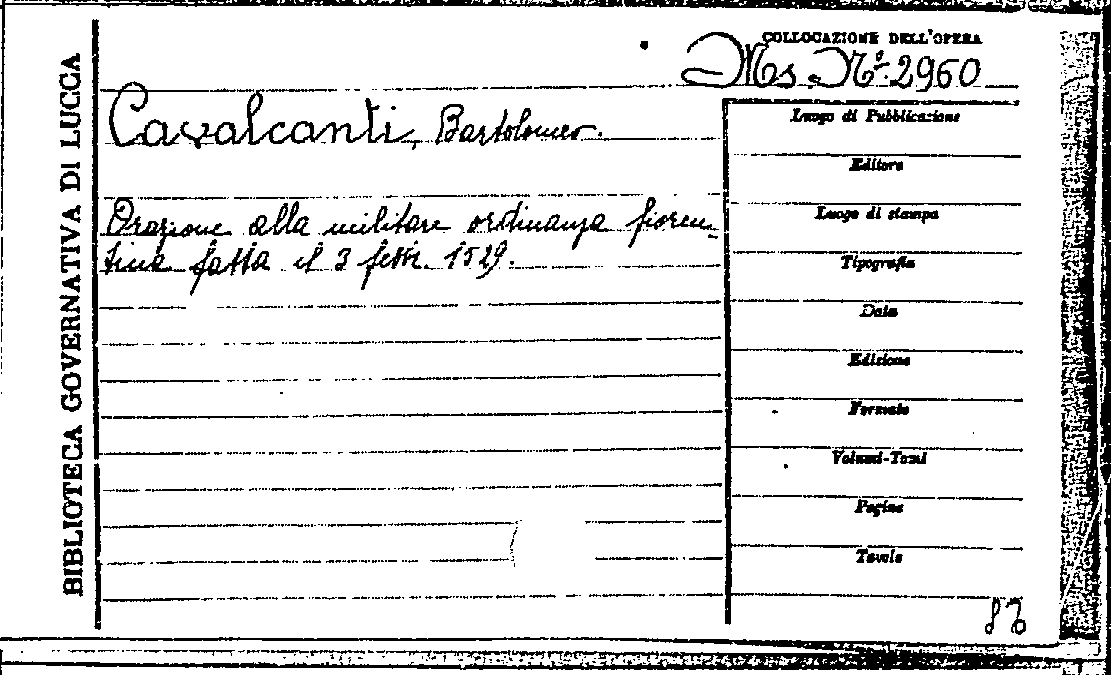 BIBLIOTECA GOVERNATIVA DI LUCCA
COLLOCAZIONE DELL'OPERA
Ms. Nº. 2960
Cavalcanti, Bartolomeo.
Orazione alla militare ordinanza fioren-
tina fatta il 3 febbr. 1529.
Luogo di Pubblicazione
Editore
Luogo di stampa
Tipografia
Data
Edizione
Formato
Volumi-Tomi
Pagine
Tavole